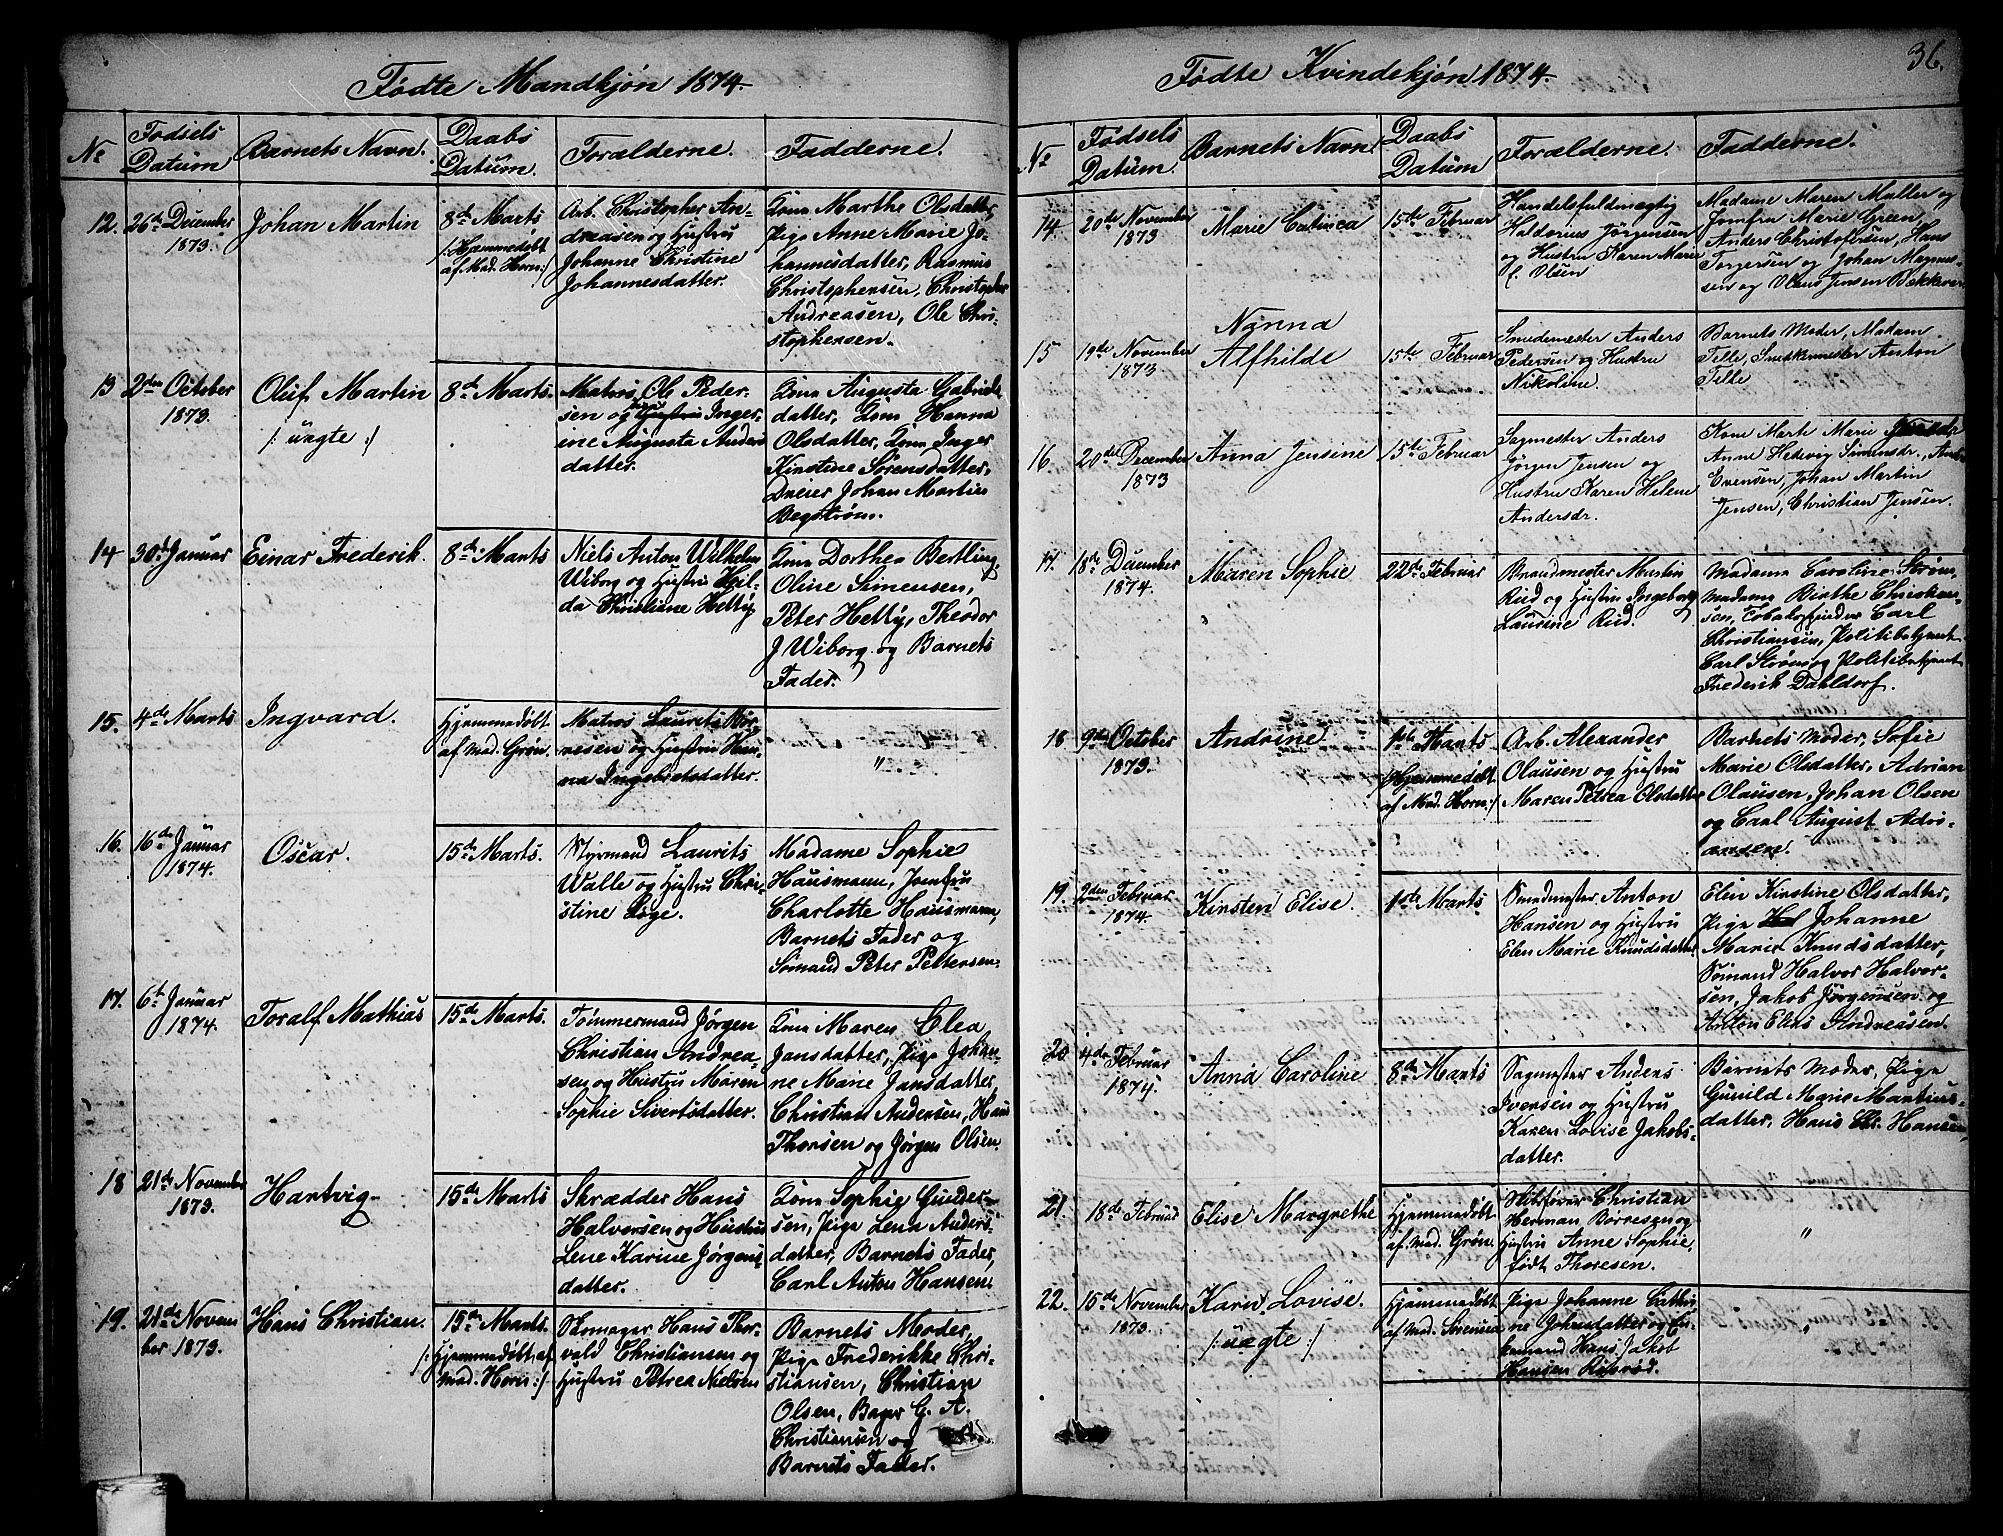 36.
Fødte Mandkjøn 1874.
No
Fødsels Datum
Barnets Navn.
Daabs Datum.
Forælderne.
Fadderne.
12.
26de December
1873.
Johan Martin
8de Marts
/: Hjemmedøbt
af Mad. Horn :/
Arb. Christopher An-
dreasen og Hustru
Johanne Christine
Johannesdatter.
Kona Marthe Olsdatter,
Pige Anne Marie Jo-
hannesdatter, Rasmus
Christophersen, Christopher
Andreasen, Ole Chri-
stophersen.
13
2den October
1873.
Oluf Martin
/: uægte :/
8de Marts.
Matros Ole Peder-
sen og Hustru Inger-
ine Augusta Anders
datter.
Kona Augusta Gabriels
datter, Kona Hanna
Olsdatter, Kona Inger
Kirstine Sørensdatter,
Dreier Johan Martin
Begstrøm.
14
30de Januar
Einar Frederik.
8de Marts
Niels Anton Wilhelm
Wiborg og Hustru Hil-
da Christiane Hetty
Kona Dorthea Bertling,
Oline Simensen,
Peter Hetty, Theodor
J Wiborg og Barnets
Fader.
15.
4de Marts
Ingvard.
Hjemmedøbt
af Mad. Grøn.
Matros Laurits Bør-
resen og Hustru Han-
na Ingebretsdatter.
"
16.
16de Januar
1874.
Oscar.
15de Marts.
Styrmand Laurits
Walle og Hustru Chri-
stine Løge.
Madame Sophie
Hausmann, Jomfru
Charlotte Hausmann,
Barnets Fader og
Sømand Peter Pettersen.
17.
6te Januar
1874.
Toralf Mathias
15de Marts.
Tømmermand Jørgen
Christian Andrea-
sen og Hustru Maren
Sophie Sivertsdatter.
Kona Maren Elea
Jansdatter, Pige Johan-
ne Marie Jansdatter,
Christian Andersen, Hans
Thorsen og Jørgen Olsen.
18
21de November
1873.
Hartvig
15de Marts
Skrædder Hans
Halvorsen og Hustru
Lene Karine Jørgens
datter.
Kona Sophie Gunder-
sen, Pige Lena Anders
datter, Barnets Fader,
Carl Anton Hansen
19.
21de Novem
ber 1873.
Hans Christian.
15de Marts.
/: Hjemmedøbt af
Mad. Horn :/
Skomager Hans Thor-
vald Christiansen og
Hustru Petrea Nielsen
Barnets Moder,
Pige Frederikke Chri-
stiansen, Christian
Olsen, Bager G. A.
Christiansen og
Barnets Fader.
Fødte Kvindekjøn 1874.
No
Fødsels Datum.
Barnets Navn
Daabs Datum
Forælderne.
Fadderne.
14.
20de November
1873
Marie Catinca
15de Februar
Handelsfuldmægtig
Haldorius Jørgensen
og Hustru Karen Marie
f. Olsen
Madame Maren Møller og
Jomfru Marie Green,
Anders Christofersen, Hans
Torgersen og Johan Magnus-
sen og Olaus Jensen
15
19de November
1873
Nanna
Alfhilde
15de Februar
Smedemester Anders
Pedersen og Hustru
Nikoline.
Barnets Moder, Madam
Tille, Snedkermester Anton
Tille
16.
20de December
1873
Anna Jensine
15de Februar
Sagmester Anders
Jørgen Jensen og
Hustru Karen Helene
Andersdr.
Kone Marte Marie
Anne Hedevig Simensdr.,
Evensen, Johan Martin
Jensen, Christian Jensen.
17.
18de December
1874.
Maren Sophie
22de Februar
Brandmester Martin
Ried og Hustru Ingeborg
Laurine Ried.
Madame Caroline Strøm,
Madame Birthe Christian-
sen, Tobaksspinder Carl
Christiansen, Politibetjent
Carl Strøm og Politibetjent
Frederik Dahldorf.
18
9de October
1873.
Andrine
1ste Marts
/: Hjemmedøbt
af Mad. Horn :/
Arb. Alexander
Olausen og Hustru
Maren Petrea Olsdatter
Barnets Moder, Sofie
Marie Olsdatter, Adrian
Olausen, Johan Olsen
og Carl August Adri-
ansen.
19.
2den Februar
1874.
Kirsten Elise.
1ste Marts
Smedmester Anton
Hansen og Hustru
Elen Marie Knudsdatter
Elen Kirstine Olsdatter,
Pige Johanne
Marie Knudsdatter,
Sømand Halvor Halvor-
sen, Jakob Jørgensen og
Anton Elias Andreasen.
20
4de Februar
1874.
Anna Caroline
8de Marts
Sagmester Anders
Iversen og Hustru
Karen Lovise Jakobs-
datter.
Barnets Moder, Pige
Gunild Marie Martins-
datter, Hans Chr. Hansen
21
18de Februar
Elise Margrethe
Hjemmedøbt
af Mad. Grøn.
Skibsfører Christian
Herman Børresen og
Hustru Anne Sophie,
født Thoresen.
"
22.
15de November
1873
Karen Lovise.
/: uægte :/
Hjemmedøbt
af Mad. Sørensen
Pige Johanne Cathri-
ne Johnsdatter og En-
kemand Hans Jakob
Hansen Rødsrød.
"